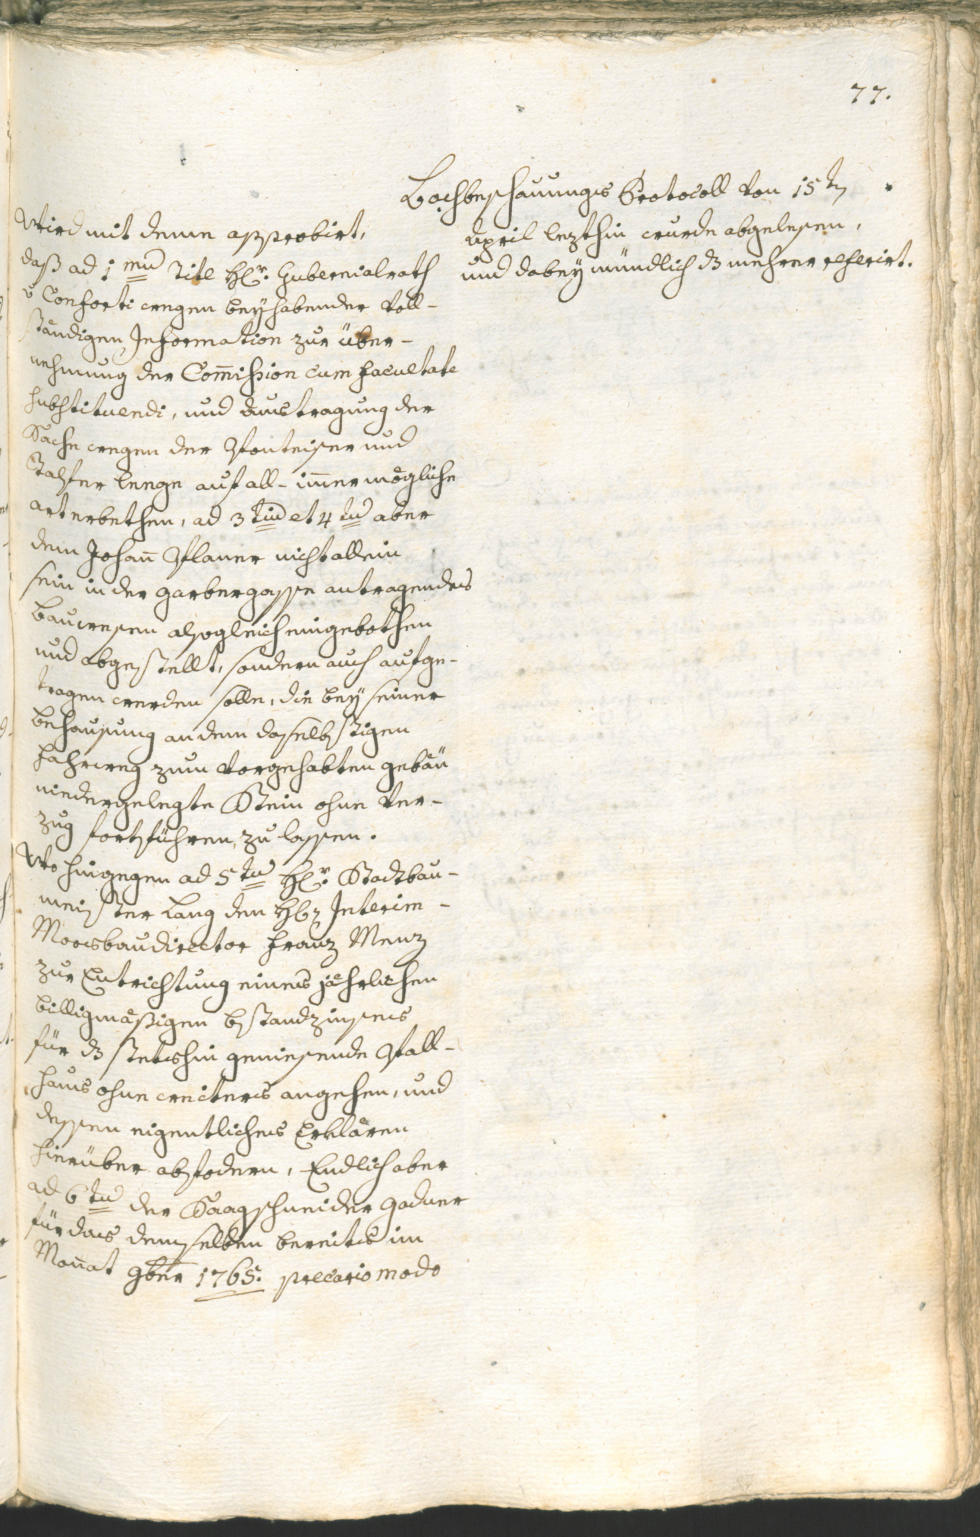 77.
Bachbeschauungs Protocoll von 15 t
April lezthin wurde abgelesen,
und dabey mündlich dz mehrere referirt.
Wird mit deme approbirt,
daß ad 1 mu Titl Hl. Gubernialrath
v Conforti wegen beyhabender voll-
ständigen Information zur über-
nehmung der Com̄ission cum facultate
substituendi, und Austragung der
Sache wegen der und
Talfer leege auf all- im̄er mögliche
art erbethen, ad 3 tiu et 4 tu aber
dem Johan̄ Planer nicht allein
sein in der Garbergasse antragendes
Bauwesen alsogleich eingebothen
und abgestellt, sondern auch aufge-
tragen werden solle, die bey seiner
behausung an dem daselbstigen
fahrweg zum vorgehabten gebäu
niedergelegte Stein ohne Ver-
zug fortführen zu lassen.
Wo hingegen ad 5 tu Hl. Stadtbau-
meister Lang den H Interim-
Moosbaudirector Franz Menz
zur Entrichtung eines jährlichen
billigmäßigen bstandzinses
für dz stetshin geniesende Stall-
haus ohne weiters angehen, und
dessen eigentliches Erklären
hierüber abfodern, Endlich aber
ad 6 tu der Saagschneider Gadner
für das demselben bereits im
Monat 9ber 1765. precario modo